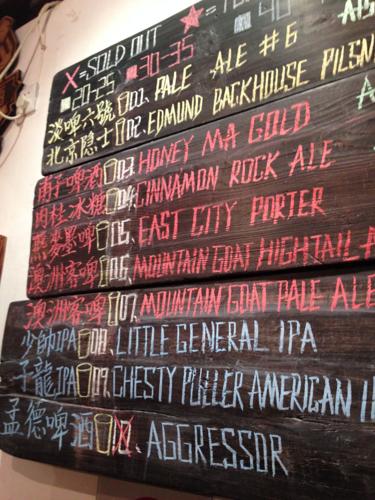 X=SOLD OUT
20-25 30-35 40
淡啤六號 01. PALE ALE #6
北京隐士 02. EDMUND BACKHOUSE PILSN
啤酒 03. HONEY MA GOLD
肉桂冰糖 04. CINNAMON ROCK ALE
燕麥墨啤 05. EAST CITY PORTER
澳洲客啤 06. MOUNTAIN GOAT HIGHTAIL A
澳洲客啤 07. MOUNTAIN GOAT PALE ALE
少帥IPA 08. LITTLE GENERAL IPA
子龍IPA 09. CHESTY PULLER AMERICAN I
孟德啤酒 AGGRESSOR